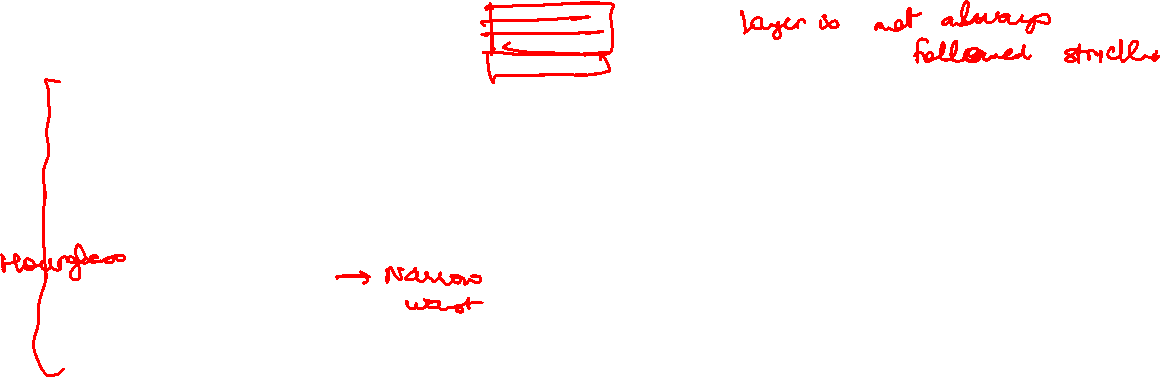 Layer is not always
followed strictly
Hourglass
→ Narrow
waist